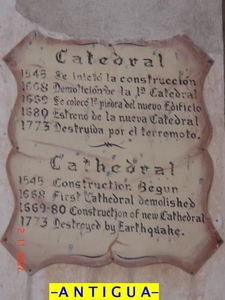 Catedral
1545 Se inició la construcción
1668 Demolición de la 1ª Catedral
1669 Se colocó 1ª piedra del nuevo Edificio
1680 Estreno de la nueva Catedral
1773 Destruida por el terremoto.
Cathedral
1545 Construction Begun
1668 First Cathedral demolished
1669-80 Construction of new Cathedral
1773 Destroyed by Earthquake.
–ANTIGUA–